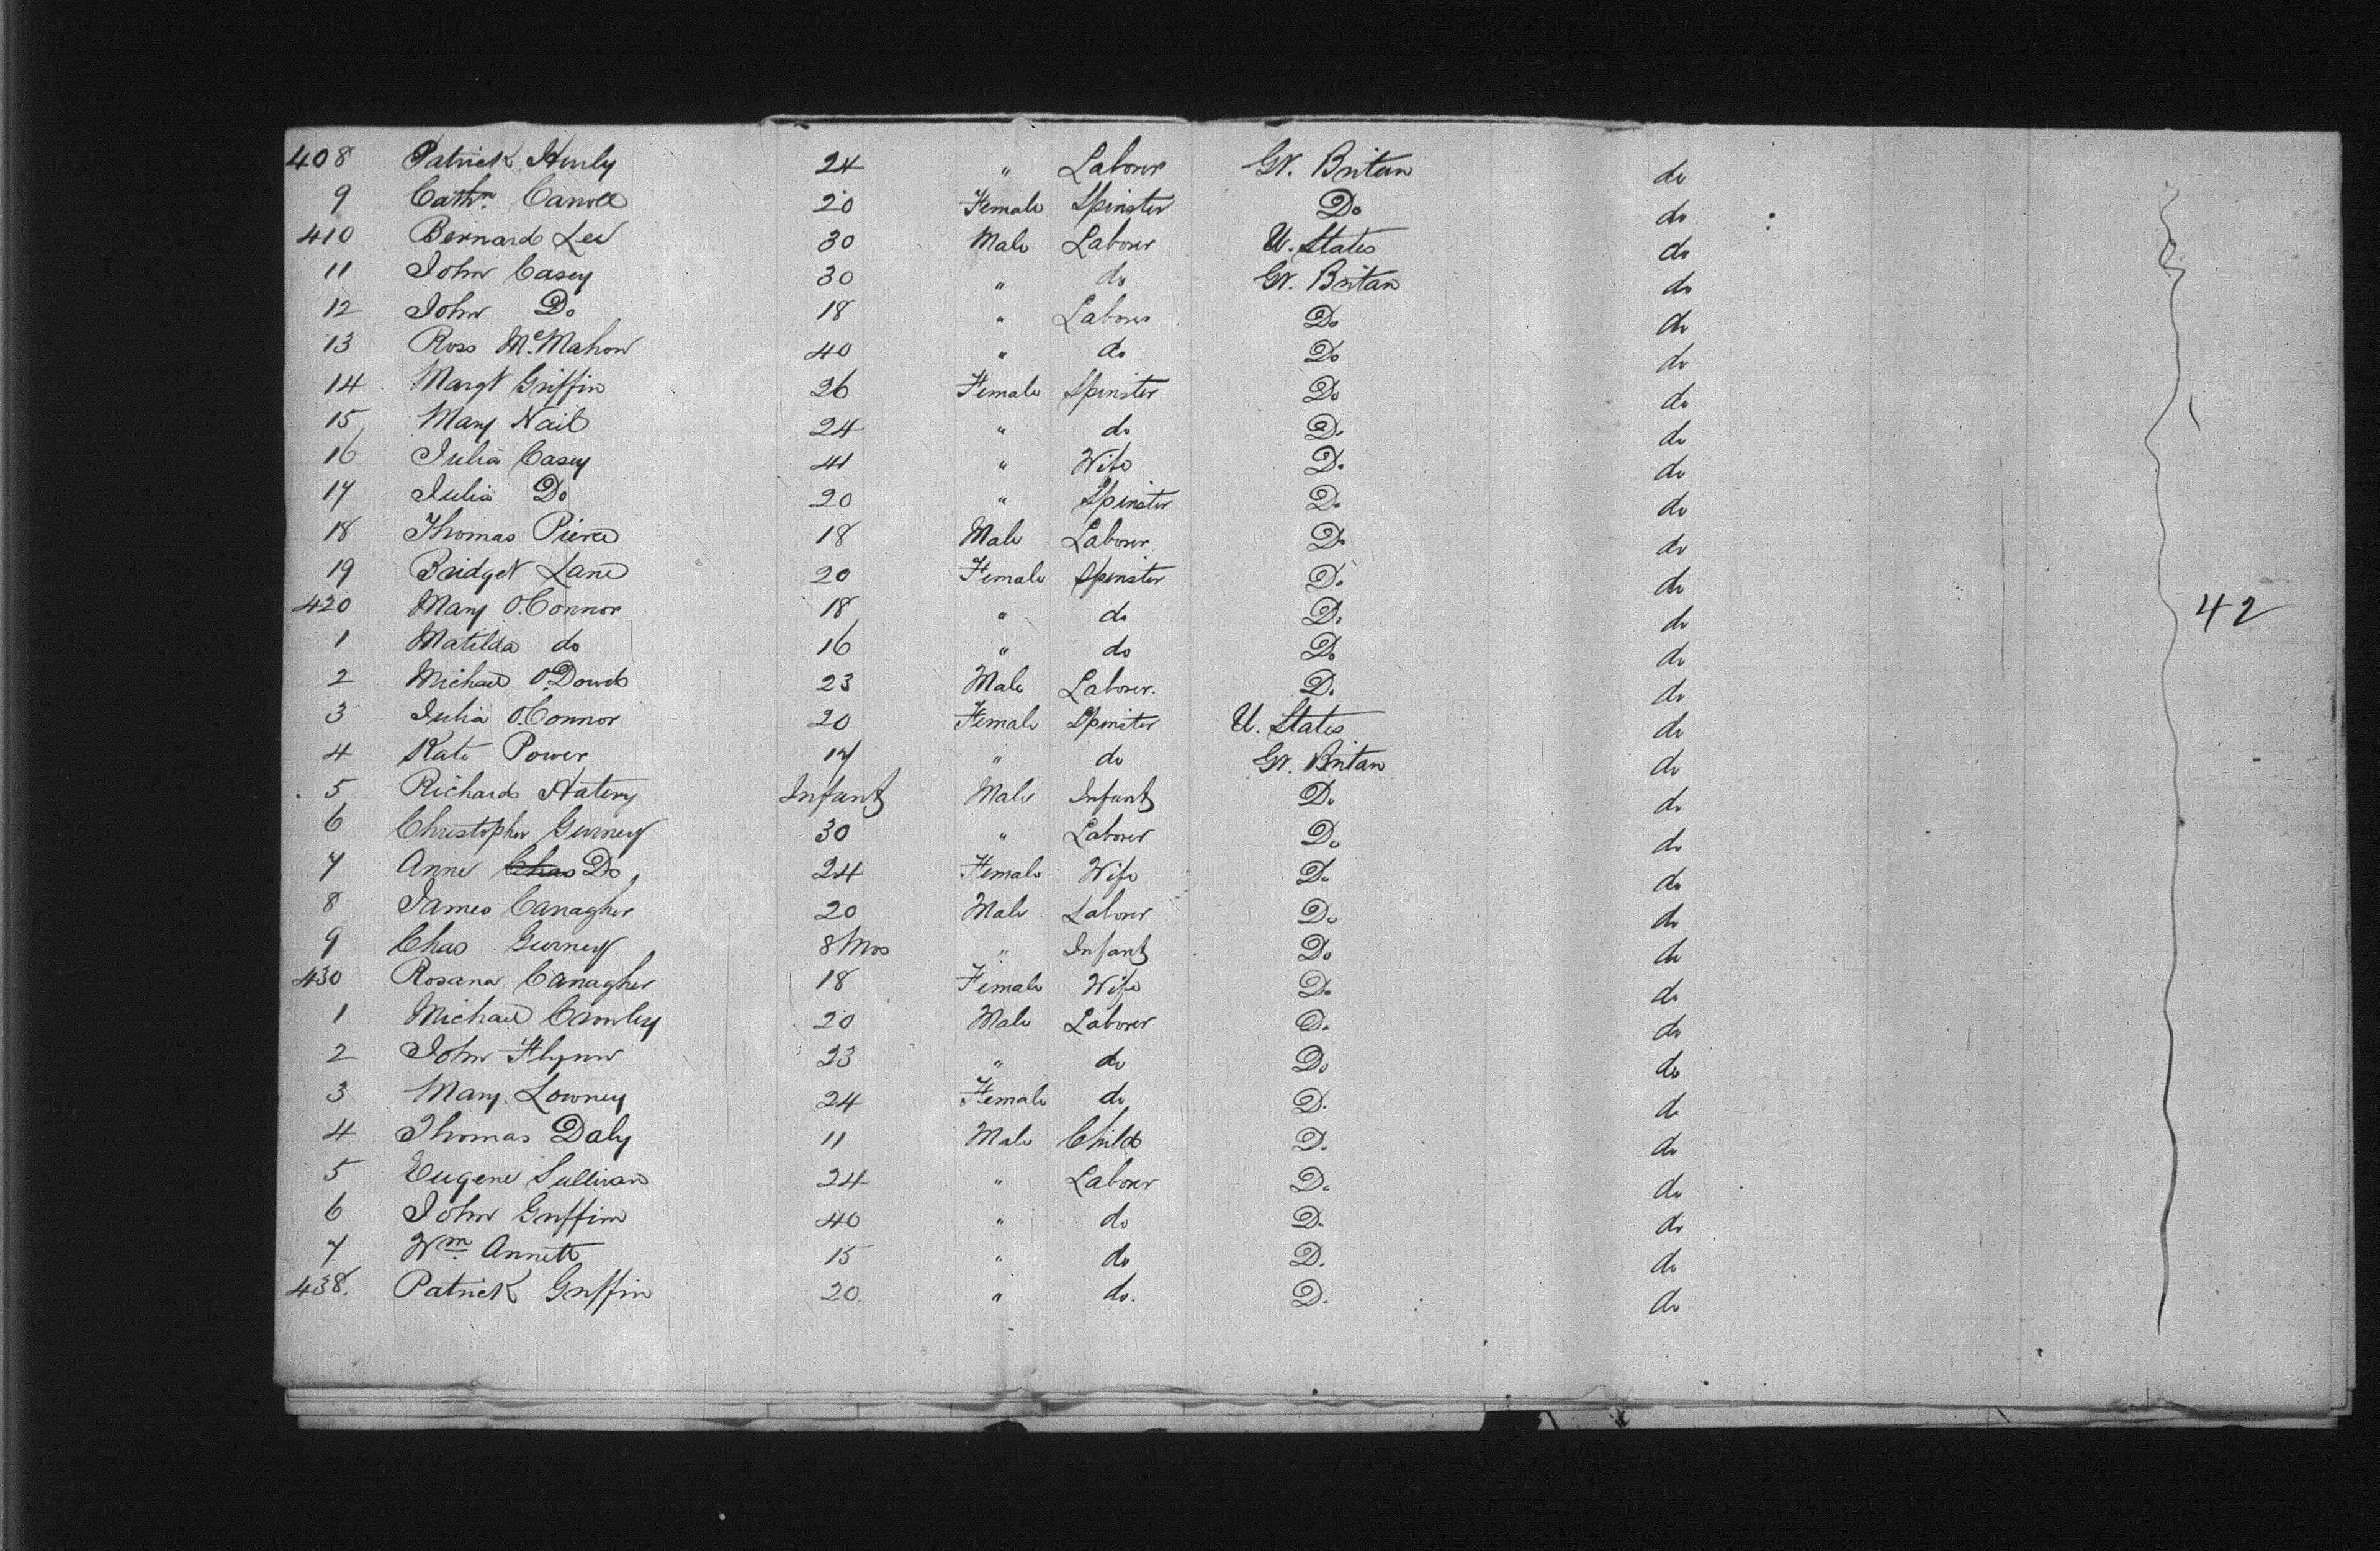 408 Patrick Hurly 24 " Laborer Gt. Britan do
9 Cathn. Carroll 20 Female Spinster Do do
410 Bernard Lee 30 Male Laborer U. States do
11 John Casey 30 " do Gt. Britan do
12 John Do 18 " Laborer Do do
13 Ross McMahon 40 " do Do do
14 Margt Griffin 26 Female Spinster Do do
15 Mary Nail 24 " do Do do
16 Julia Casey 41 " Wife Do do
17 Julia Do 20 " Spinster Do do
18 Thomas Pierce 18 Male Laborer Do do
19 Bridget Lane 20 Female Spinster Do do
420 Mary O'Connor 18 " do Do do 42
1 Matilda do 16 " do Do do
2 Michael O'Dowd 23 Male Laborer. Do do
3 Julia O'Connor 20 Female Spinster U. States do
4 Kate Power 17 " do Gt. Britan do
5 Richard Infant Male Infant Do do
6 Christopher Gurney 30 " Laborer Do do
7 Anne Chas Do 24 Female Wife Do do
8 James Canagher 20 Male Laborer Do do
9 Chas Gurney 8 Mos " Infant Do do
430 Rosana Canagher 18 Female Wife Do do
1 Michael 20 Male Laborer Do do
2 John Flynn 23 " do Do do
3 Mary Lowney 24 Female do Do do
4 Thomas Daly 11 Male Child Do do
5 Eugene Sullivan 24 " Laborer Do do
6 John Griffin 40 " do Do do
7 Wm. Annett 15 " do Do do
438. Patrick Griffin 20 " do. Do do